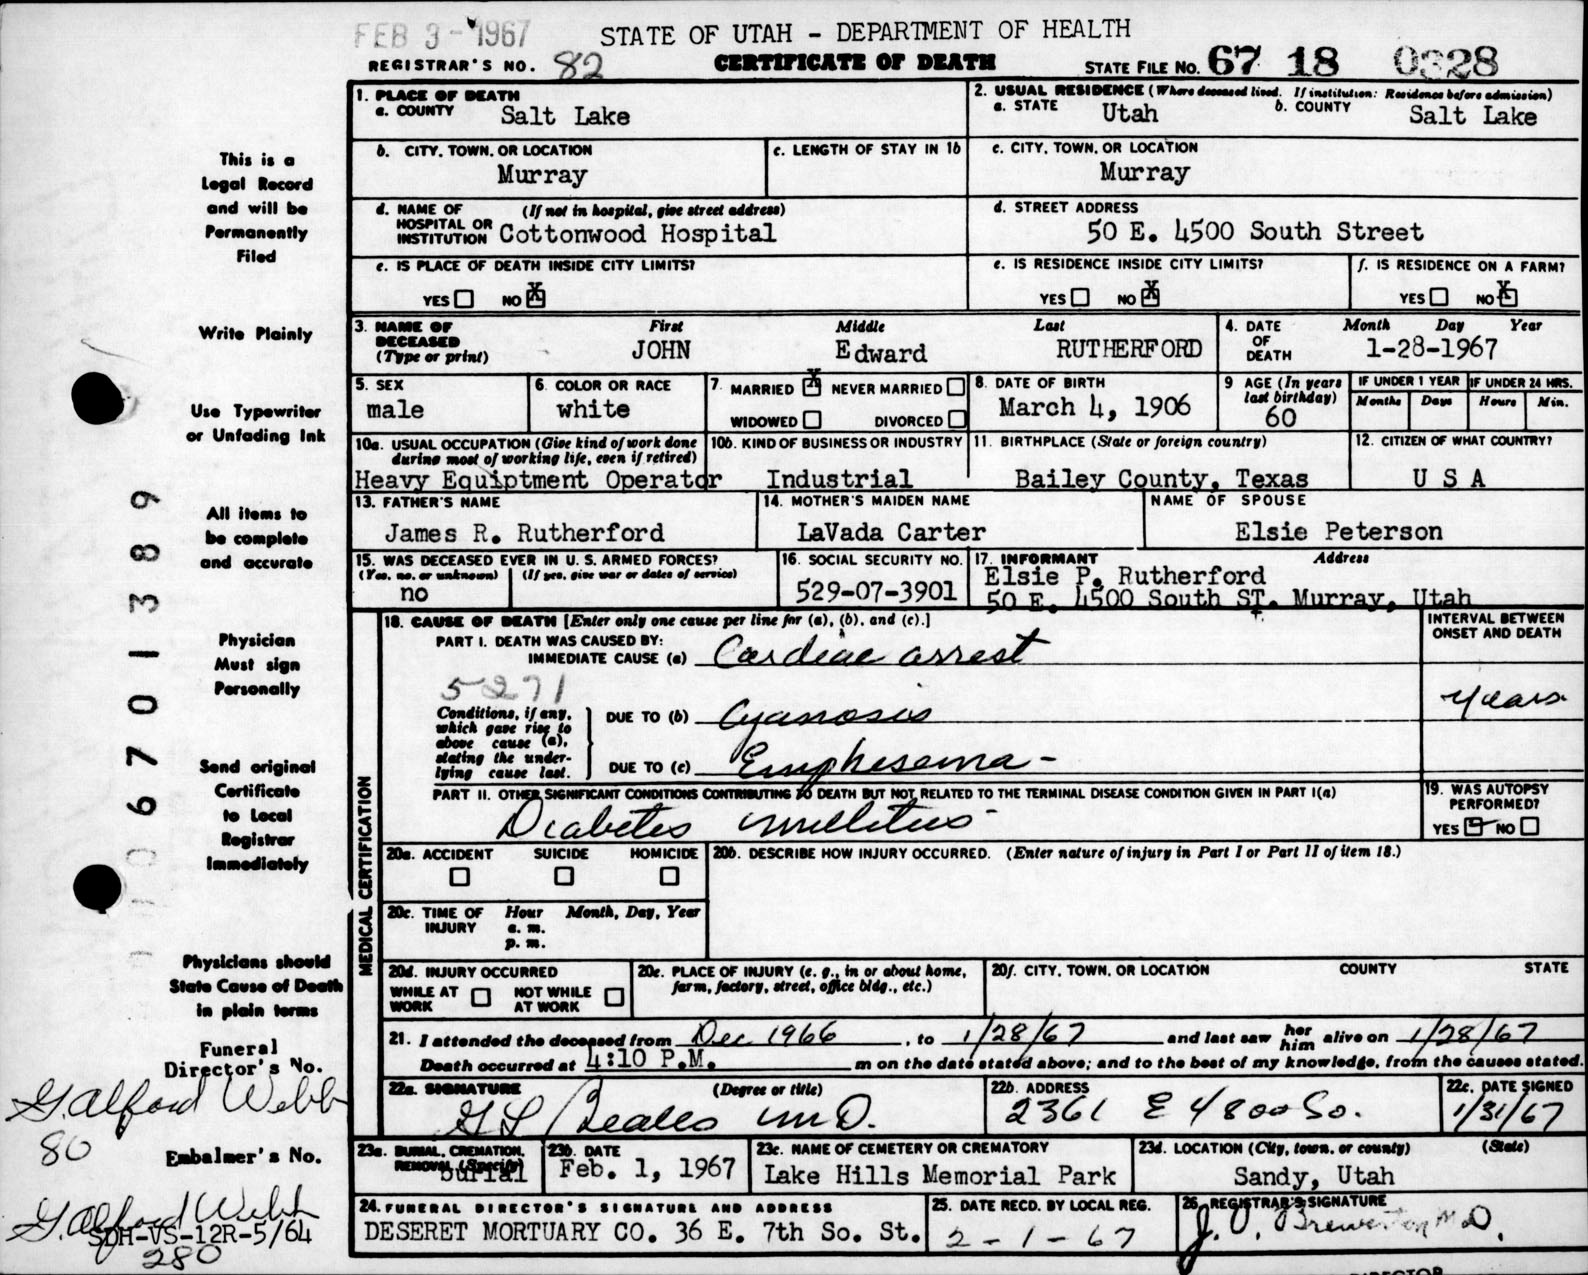 FEB 3 - 1967 STATE OF UTAH - DEPARTMENT OF HEALTH
REGISTRAR'S NO. 82 CERTIFICATE OF DEATH STATE FILE NO. 67 18 0328
This is a
Legal Record
and will be
Permanently
Filed
Write Plainly
Use Typewriter
or Unfading Ink
All items to
be complete
and accurate
Physician
Must sign
Personally
Send original
Certificate
to Local
Registrar
Immediately
Physicians should
State Cause of Death
in plain terms
Funeral
Director's No.
G. Alford Webb
80
Embalmer's No.
G. Alford Webb
SDH-VS-12R-5/64
280
006701389
1. PLACE OF DEATH
a. COUNTY Salt Lake
2. USUAL RESIDENCE (Where deceased lived. If institution: Residence before admission)
a. STATE Utah b. COUNTY Salt Lake
b. CITY, TOWN, OR LOCATION
Murray
c. LENGTH OF STAY IN 1b
c. CITY, TOWN, OR LOCATION
Murray
d. NAME OF HOSPITAL OR INSTITUTION (If not in hospital, give street address)
Cottonwood Hospital
d. STREET ADDRESS
50 E. 4500 South Street
e. IS PLACE OF DEATH INSIDE CITY LIMITS?
YES NO X
e. IS RESIDENCE INSIDE CITY LIMITS?
YES NO X
f. IS RESIDENCE ON A FARM?
YES NO X
3. NAME OF DECEASED (Type or print) First Middle Last
JOHN Edward RUTHERFORD
4. DATE OF DEATH Month Day Year
1-28-1967
5. SEX
male
6. COLOR OR RACE
white
7. MARRIED X NEVER MARRIED
WIDOWED DIVORCED
8. DATE OF BIRTH
March 4, 1906
9 AGE (In years last birthday)
60
IF UNDER 1 YEAR IF UNDER 24 HRS.
Months Days Hours Min.
10a. USUAL OCCUPATION (Give kind of work done during most of working life, even if retired)
Heavy Equiptment Operator
10b. KIND OF BUSINESS OR INDUSTRY
Industrial
11. BIRTHPLACE (State or foreign country)
Bailey County, Texas
12. CITIZEN OF WHAT COUNTRY?
U S A
13. FATHER'S NAME
James R. Rutherford
14. MOTHER'S MAIDEN NAME
LaVada Carter
NAME OF SPOUSE
Elsie Peterson
15. WAS DECEASED EVER IN U. S. ARMED FORCES?
(Yes, no, or unknown) (If yes, give war or dates of service)
no
16. SOCIAL SECURITY NO.
529-07-3901
17. INFORMANT Address
Elsie P. Rutherford
50 E. 4500 South ST. Murray, Utah
MEDICAL CERTIFICATION
18. CAUSE OF DEATH [Enter only one cause per line for (a), (b), and (c).]
INTERVAL BETWEEN ONSET AND DEATH
PART I. DEATH WAS CAUSED BY:
IMMEDIATE CAUSE (a) Cardiac arrest
5271
Conditions, if any, which gave rise to above cause (a), stating the underlying cause last.
DUE TO (b) Cyanosis
years
DUE TO (c) Emphesema -
PART II. OTHER SIGNIFICANT CONDITIONS CONTRIBUTING TO DEATH BUT NOT RELATED TO THE TERMINAL DISEASE CONDITION GIVEN IN PART I(a)
Diabetes mellitus
19. WAS AUTOPSY PERFORMED?
YES NO
20a. ACCIDENT SUICIDE HOMICIDE
20b. DESCRIBE HOW INJURY OCCURRED. (Enter nature of injury in Part I or Part II of item 18.)
20c. TIME OF INJURY Hour Month, Day, Year
a. m.
p. m.
20d. INJURY OCCURRED
WHILE AT WORK NOT WHILE AT WORK
20e. PLACE OF INJURY (e. g., in or about home, farm, factory, street, office bldg., etc.)
20f. CITY, TOWN, OR LOCATION COUNTY STATE
21. I attended the deceased from Dec 1966, to 1/28/67 and last saw her him alive on 1/28/67
Death occurred at 4:10 P.M. m on the date stated above; and to the best of my knowledge, from the causes stated.
22a. SIGNATURE (Degree or title)
G L Beales M.D.
22b. ADDRESS
2361 E 4800 So.
22c. DATE SIGNED
1/31/67
23a. BURIAL, CREMATION, REMOVAL (Specify)
burial
23b. DATE
Feb. 1, 1967
23c. NAME OF CEMETERY OR CREMATORY
Lake Hills Memorial Park
23d. LOCATION (City, town, or county) (State)
Sandy, Utah
24. FUNERAL DIRECTOR'S SIGNATURE AND ADDRESS
DESERET MORTUARY CO. 36 E. 7th So. St.
25. DATE RECD. BY LOCAL REG.
2-1-67
26. REGISTRAR'S SIGNATURE
J. O. Brewerton M.D.
DIRECTOR